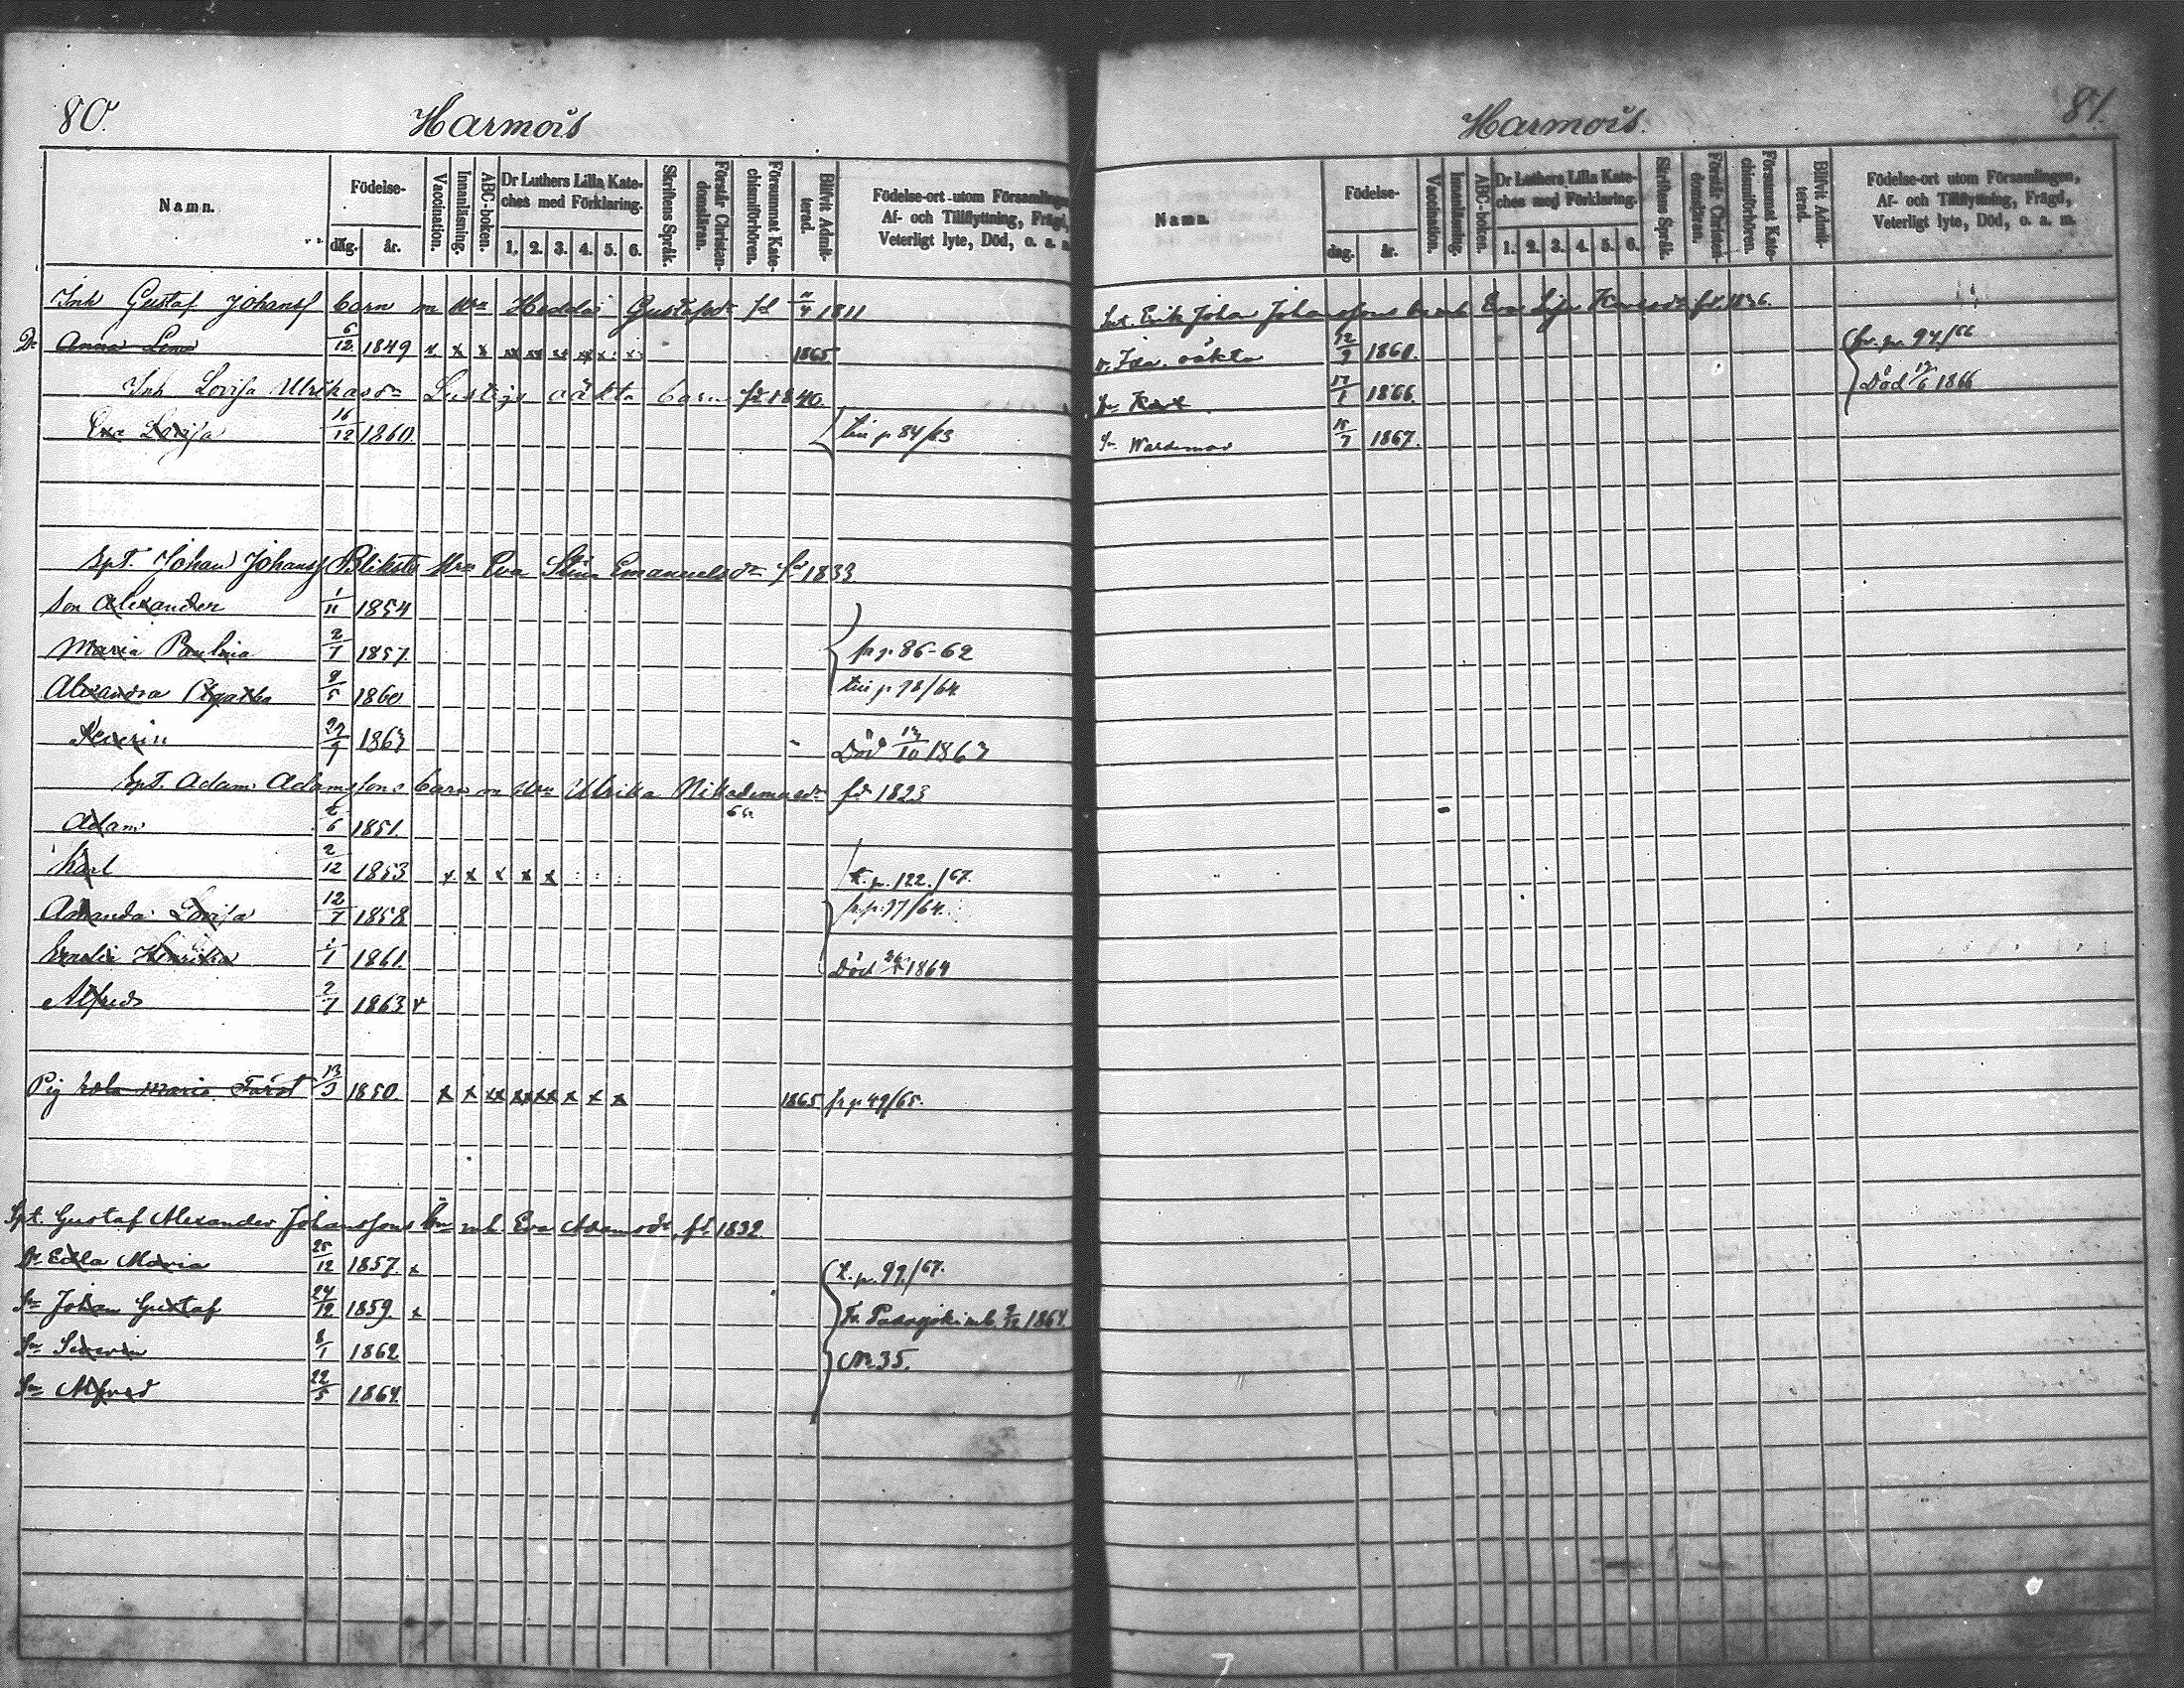 80.
Harmois
Namn.
Födelse-
dag. år.
Vaccination.
Innanläsning.
ABC-boken.
Dr Luthers Lilla Kate-
ches med Förklaring.
1. 2. 3. 4. 5. 6.
Skriftens Språk.
Förstår Christen-
domsläran.
Försummat Kate-
chismiförhören.
Blifvit Admit-
terad.
Födelse-ort utom Församlingen
Af- och Tillflyttning, Frägd,
Veterligt lyte, Död, o. a.
Inh Gustaf Johanss barn m Hedda Gustafsdr fd 11/4 1811
Dr Anna Lena 6/12 1849 x x x xx xx xx xx x x 1865
Inh Lovisa Ulrika Lustigs oäkta barn fd 1840.
Eva Lovisa 16/12 1860. till p 84/63
Spt. Johan Johanss Blikst Hru Eva Stina Emanuelsdr fd 1833
Son Alexander 1/11 1854
Maria Paulina 2/7 1857 fr p. 86-62
Alexandra Agatha 9/5 1860 till p. 78/64
Severin 27/9 1863 Död 13/10 1863
Spt. Adam Adamssons barn m Hru Ulrika Nikodemusdr fd 1823
Adam 6/6 1851.
Karl 2/12 1853 x x x x x t. p. 122./67.
Amanda Lovisa 12/7 1858 fr p. 77/64.
Henrika 1/1 1861. Död 1864
Alfred 2/7 1863 x
Pig Maria Fürst 13/3 1850 x x xx xx xx x x x 1865 fr p 49/65.
Spt. Gustaf Alexander Johanssons bn m h. Eva Adamsdr, fd 1832
Dr Edla Maria 25/12 1857. x t. p. 99./67.
Sn Johan Gustaf 24/12 1859. x Fr. Padasjoki mb. 1864.
Sn Severin 8/1 1862 No 35.
Sn Alfred 22/5 1864.
81.
Harmois.
Namn.
Födelse-
dag. år.
Vaccination.
Innanläsning.
ABC-boken.
Dr Luthers Lilla Kate-
ches med Förklaring.
1. 2. 3. 4. 5. 6.
Skriftens Språk.
Förstår Christen-
domsläran.
Försummat Kate-
chismiförhören.
Blifvit Admit-
terad.
Födelse-ort utom Församlingen,
Af- och Tillflyttning, Frägd,
Veterligt lyte, Död, o. a. m.
Erik Johan Johanssons bn m h. Eva fd. 1836.
Dr Ida. oäkta 12/9 1860. fr. p. 94/66
Sn Karl 17/1 1866. Död 1866
Sn Waldemar 15/7 1867.